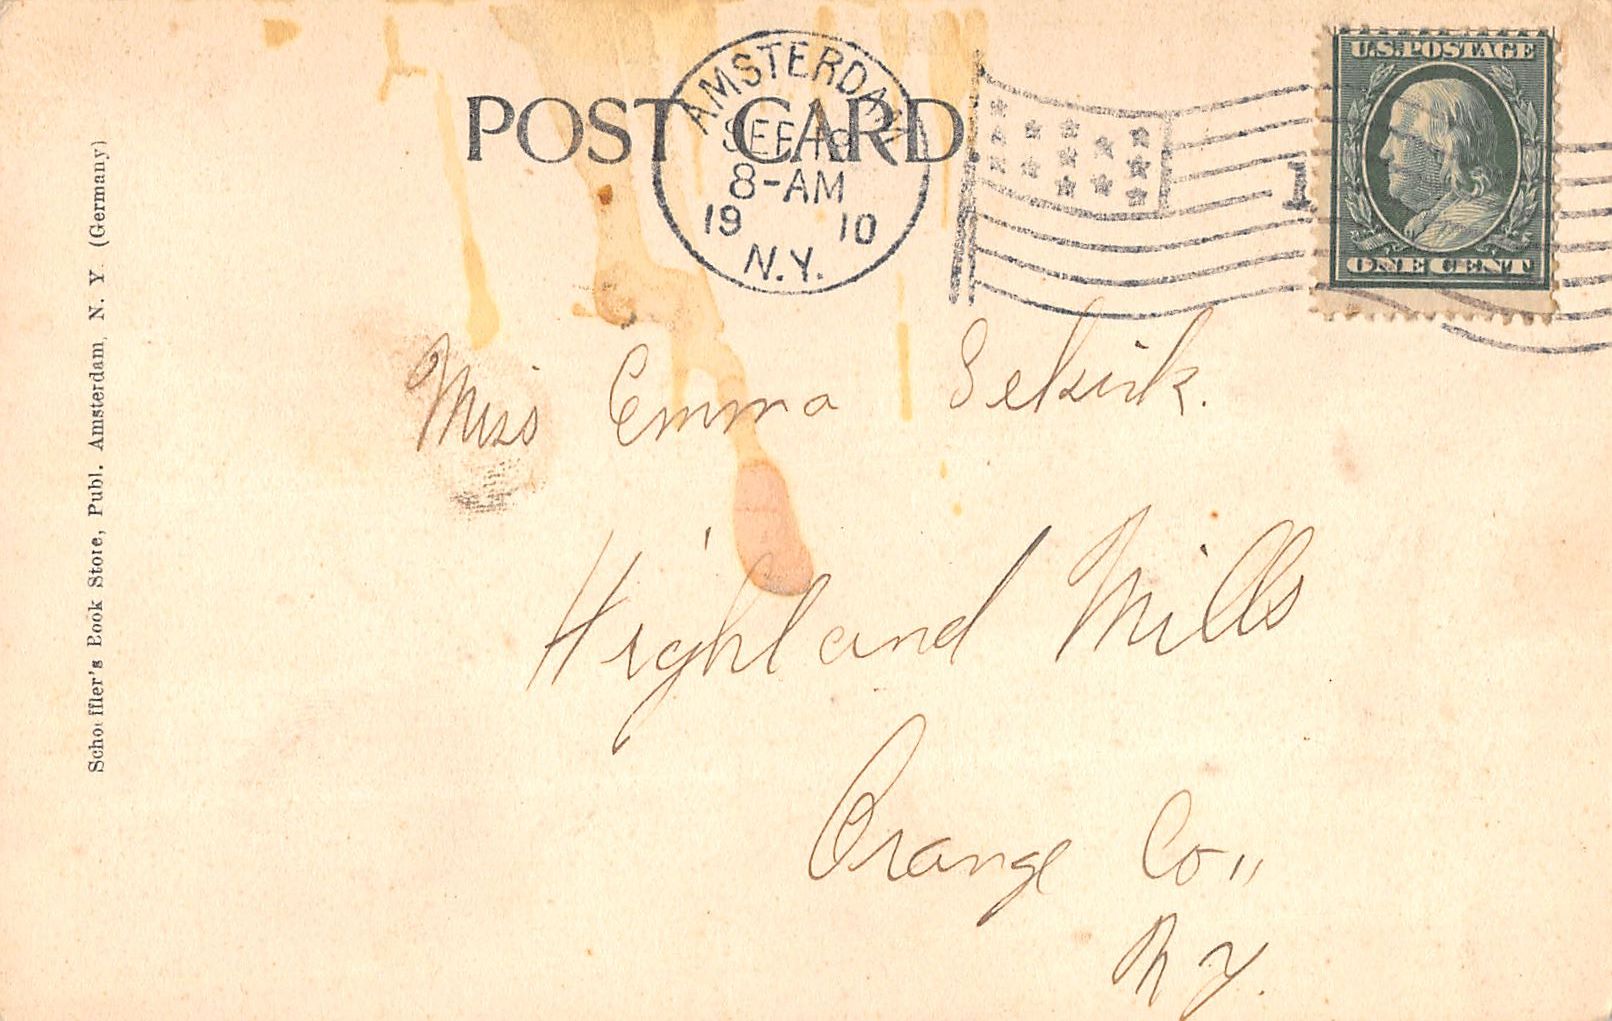 POST CARD.
AMSTERDAM
SEP 19
8-AM
19 10
N.Y.
1
U.S. POSTAGE
ONE CENT
Miss Emma Selkirk.
Highland Mills
Orange Co,,
N Y.
Schoeffler's Book Store, Publ. Amsterdam, N. Y. (Germany)